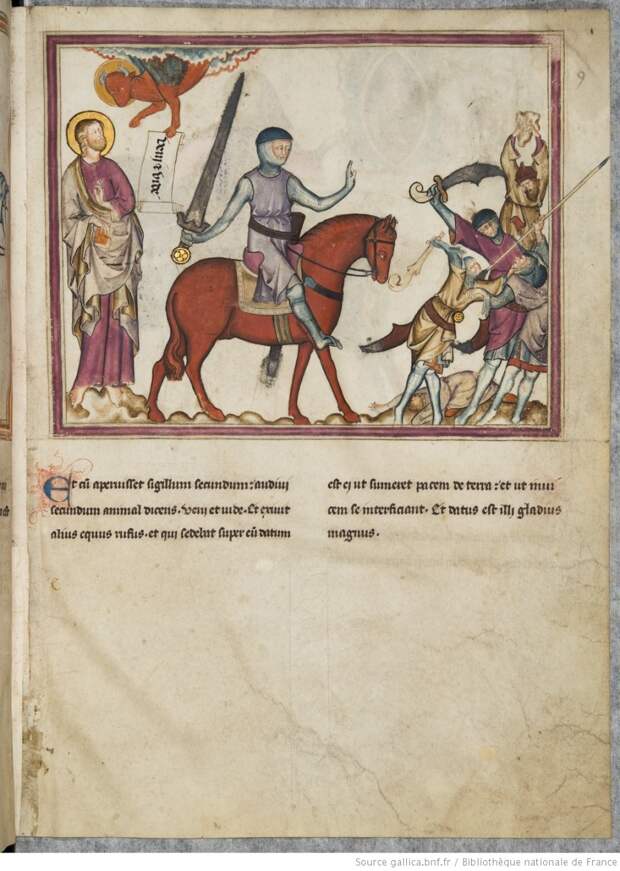 9
veni et vide
Et cũ aperuisset sigillum secundum: audiui
secundum animal dicens. veni et uide. Et exiuit
alius equus rufus. et qui sedebat super eũ datum
est ei ut sumeret pacem de terra: et ut inui
cem se interficiant. Et datus est illi gladius
magnus.
Source gallica.bnf.fr / Bibliothèque nationale de France